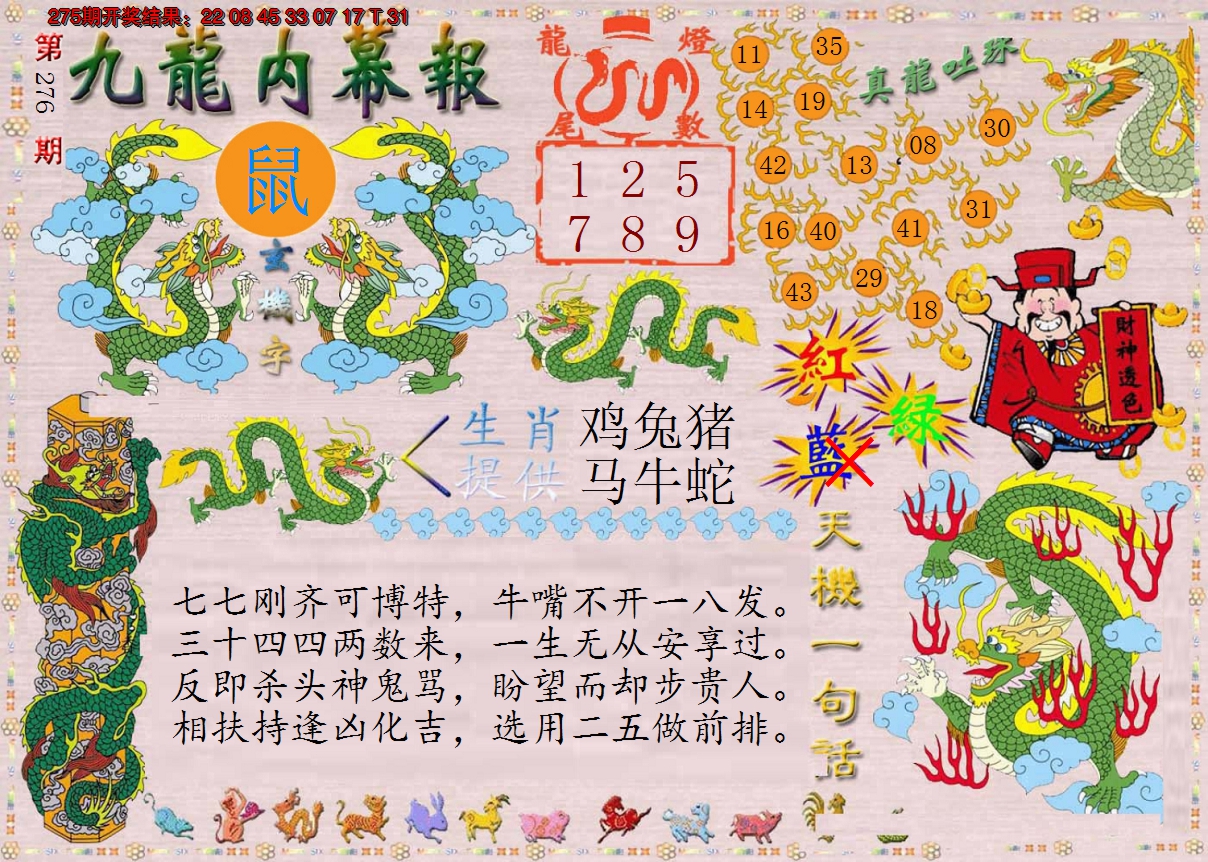 275期开奖结果：22 08 45 33 07 17 T 31
第276期
九龍内幕報
鼠
玄機字
龍燈
尾數
1 2 5
7 8 9
真龍吐珠
11 35
14 19
42 13 08 30
16 40 41 31
43 29 18
紅
綠
藍
財神透色
生肖 鸡兔猪
提供 马牛蛇
天機一句話
七七刚齐可博特，牛嘴不开一八发。
三十四四两数来，一生无从安享过。
反即杀头神鬼骂，盼望而却步贵人。
相扶持逢凶化吉，选用二五做前排。